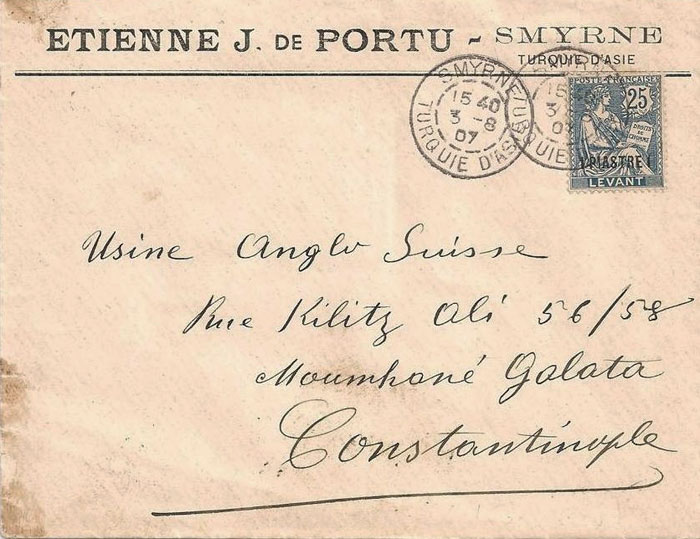 ETIENNE J. DE PORTU - SMYRNE
TURQUIE D'ASIE
SMYRNE
15 40
3 - 8
07
TURQUIE D'ASIE
15
3
07
POSTE FRANÇAISE
25
DROITS DE L'HOMME
1 PIASTRE 1
LEVANT
Usine Anglo Suisse
Rue Kilitz Ali 56/58
Moumhané Galata
Constantinople